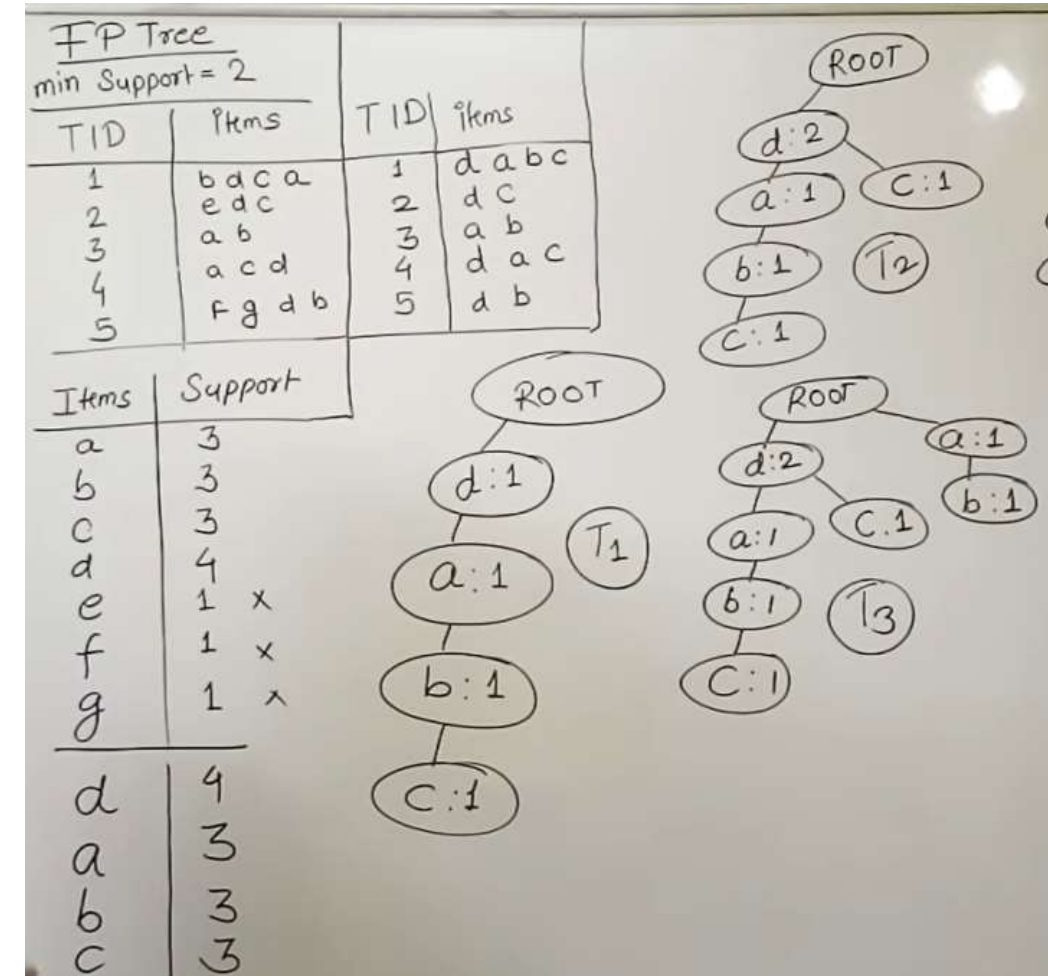 FP Tree
min Support = 2
TID items
1 b d c a
2 e d c
3 a b
4 a c d
5 f g d b
TID items
1 d a b c
2 d c
3 a b
4 d a c
5 d b
Items Support
a 3
b 3
c 3
d 4
e 1 x
f 1 x
g 1 x
d 4
a 3
b 3
c 3
ROOT
d:1
a:1
b:1
C:1
T1
ROOT
d:2
a:1 C:1
b:1
C:1
T2
ROOT
d:2 a:1
a:1 C.1 b:1
b:1
C:1
T3